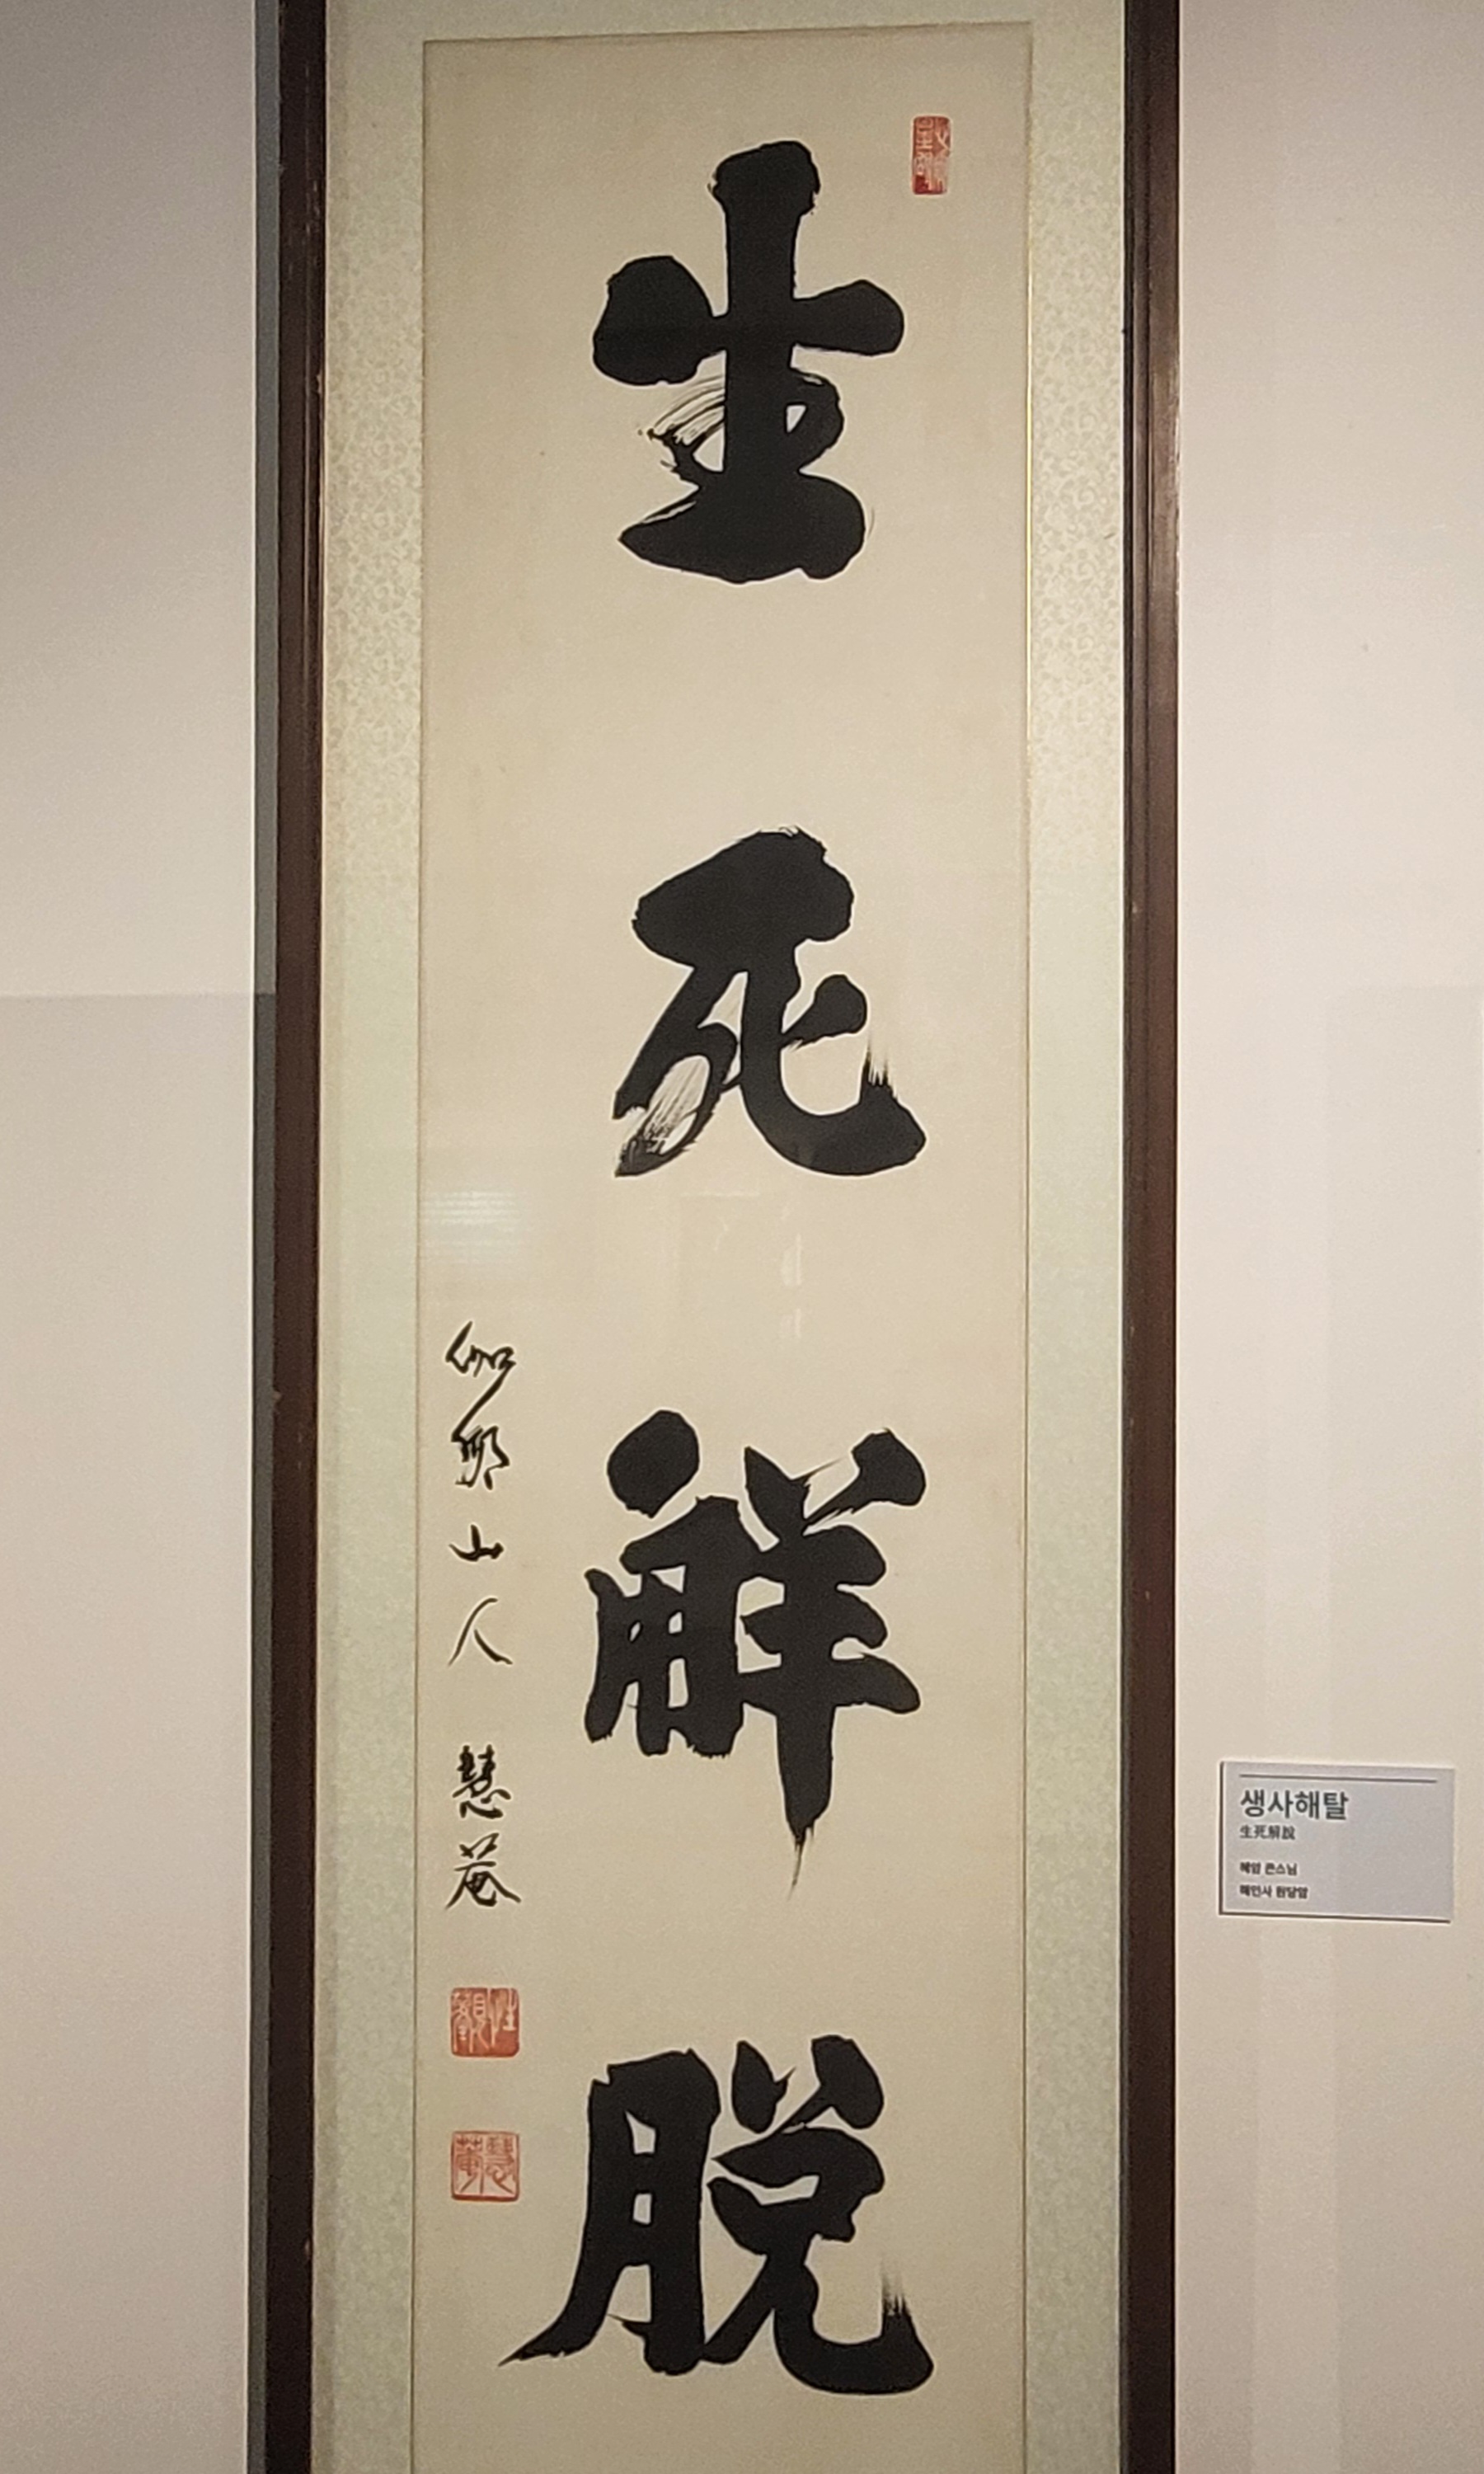 生死解脫
伽倻山人 慧菴
慧菴
생사해탈
生死解脫
혜암 큰스님
해인사 원당암